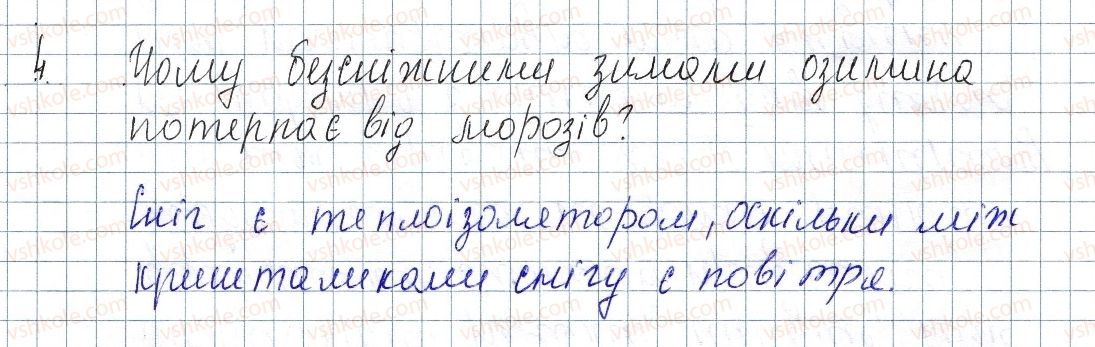 4. Чому безсніжними зимами озимина
потерпає від морозів?
Сніг є теплоізолятором, оскільки між
кришталиками снігу є повітря.